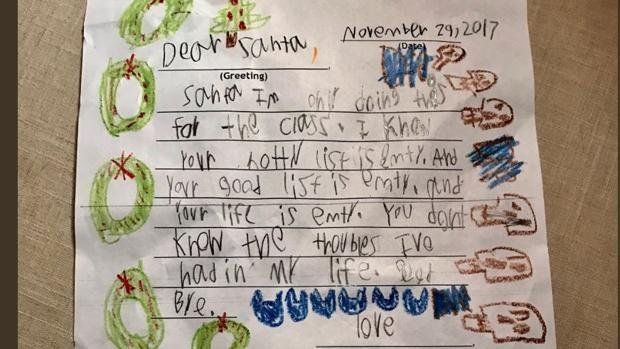 November 29, 2017
Dear Santa,
(Date)
(Greeting)
Santa Im only doing this
for the class. I Know
your notty list is emty. And
your good list is emty. and
Your life is emty. You dont
Know the troubles Ive
had in my life. Good
Bye.
love